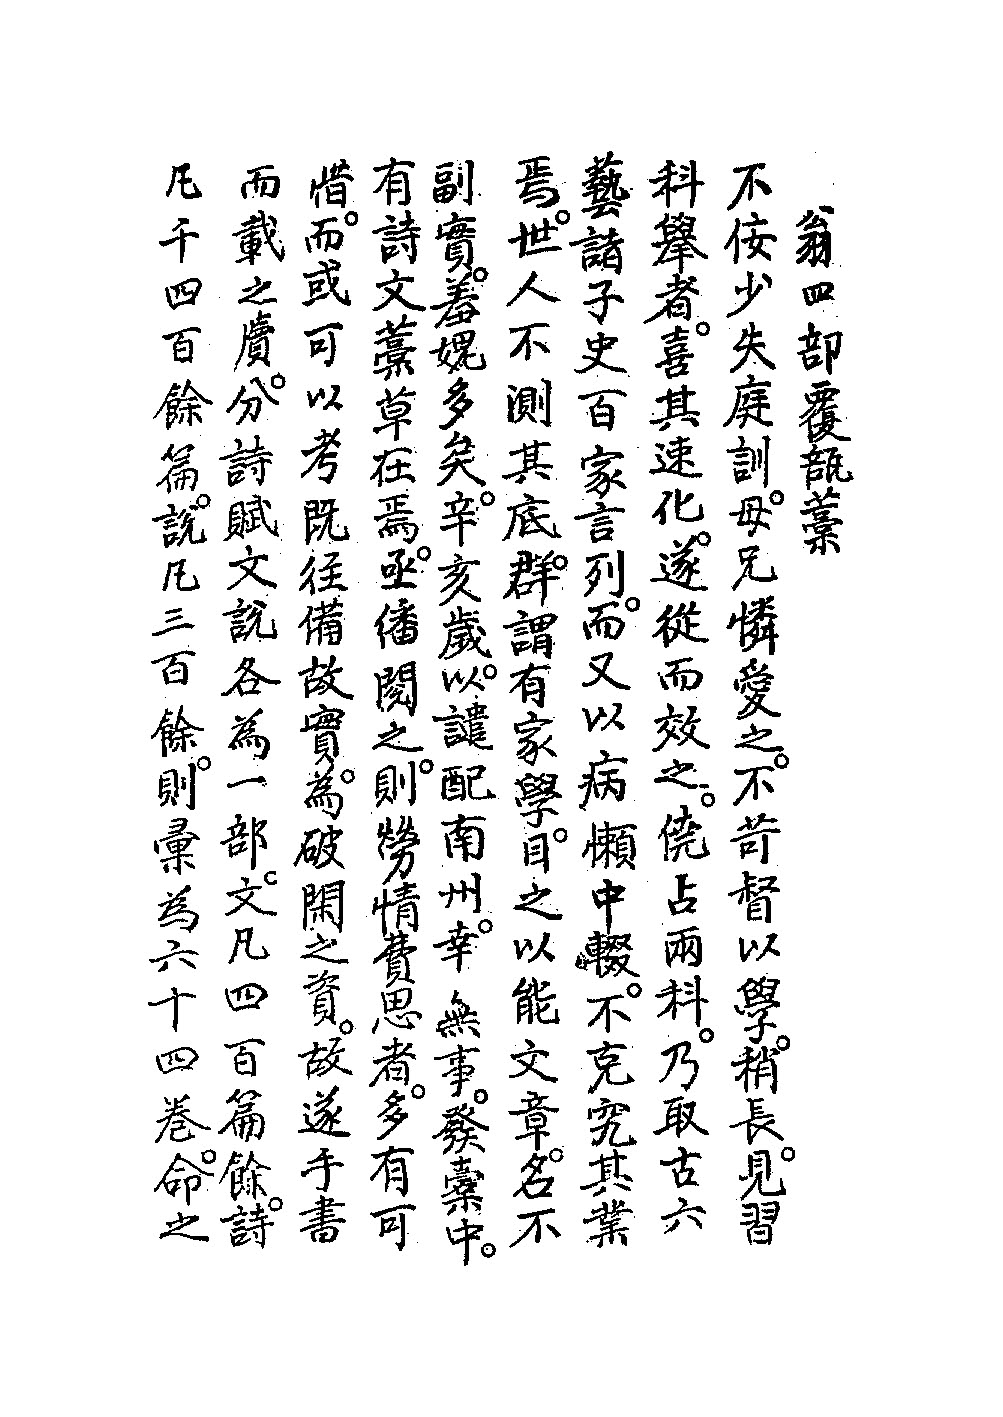 翁四部覆瓿藁
不佞少失庭訓。母兄憐愛之。不苛督以學。稍長。見習
科擧者。喜其速化。遂從而效之。僥占兩科。乃取古六
藝諸子史百家言列。而又以病懶中輟。不克究其業
焉。世人不測其底。群謂有家學。目之以能文章。名不
副實。羞媿多矣。辛亥歲。以譴配南州。幸無事。發藁中。
有詩文藁草在焉。亟繙閱之。則勞情費思者。多有可
惜。而或可以考既徃備故實。為破閑之資。故遂手書
而載之牘。分詩賦文說各為一部。文凡四百篇餘。詩
凡千四百餘篇。說凡三百餘則。彙為六十四巻。命之